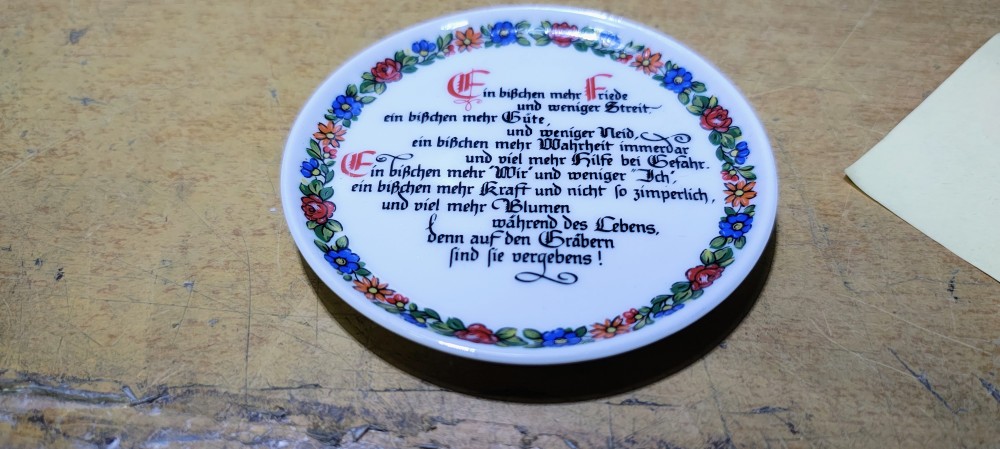 Ein bißchen mehr Friede
und weniger Streit,
ein bißchen mehr Güte,
und weniger Neid,
ein bißchen mehr Wahrheit immerdar
und viel mehr Hilfe bei Gefahr.
Ein bißchen mehr "Wir" und weniger "Ich",
ein bißchen mehr Kraft und nicht so zimperlich,
und viel mehr Blumen
während des Lebens,
denn auf den Gräbern
sind sie vergebens!